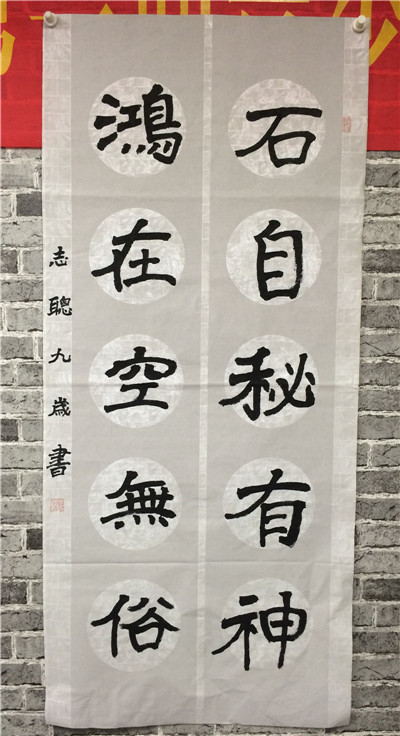 石自秘有神
鴻在空無俗
志聰九歲書